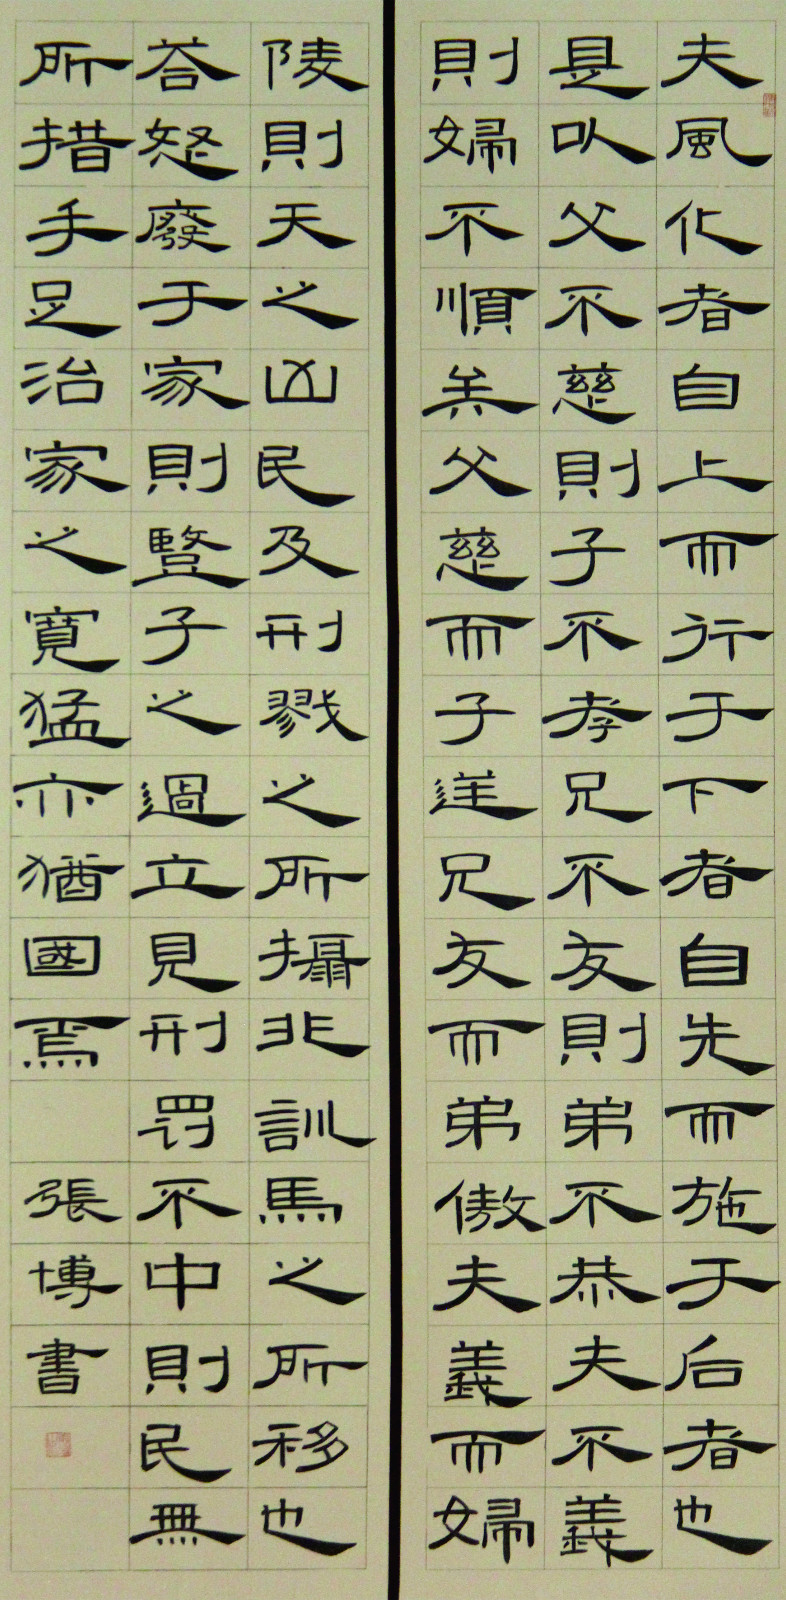 夫風化者自上而行于下者自先而施于后者也
是以父不慈則子不孝兄不友則弟不恭夫不義
則婦不順矣父慈而子逆兄友而弟傲夫義而婦
陵則天之凶民乃刑戮之所攝非訓馬之所移也
笞怒廢于家則豎子之過立見刑罰不中則民無
所措手足治家之寬猛亦猶國焉
張博書